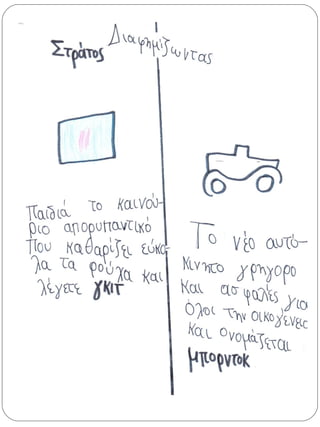 Διαφημίζωντας
Στράτος
Παιδιά το καινού-
ριο απορυπαντικό
που καθαρίζει εύκο-
λα τα ρούχα και
λέγετε γκιτ
Το νέο αυτό-
κίνητο γρηγορο
και ασφαλές για
όλοι την οικογένεις
και ονομάζεται
μπορντοκ